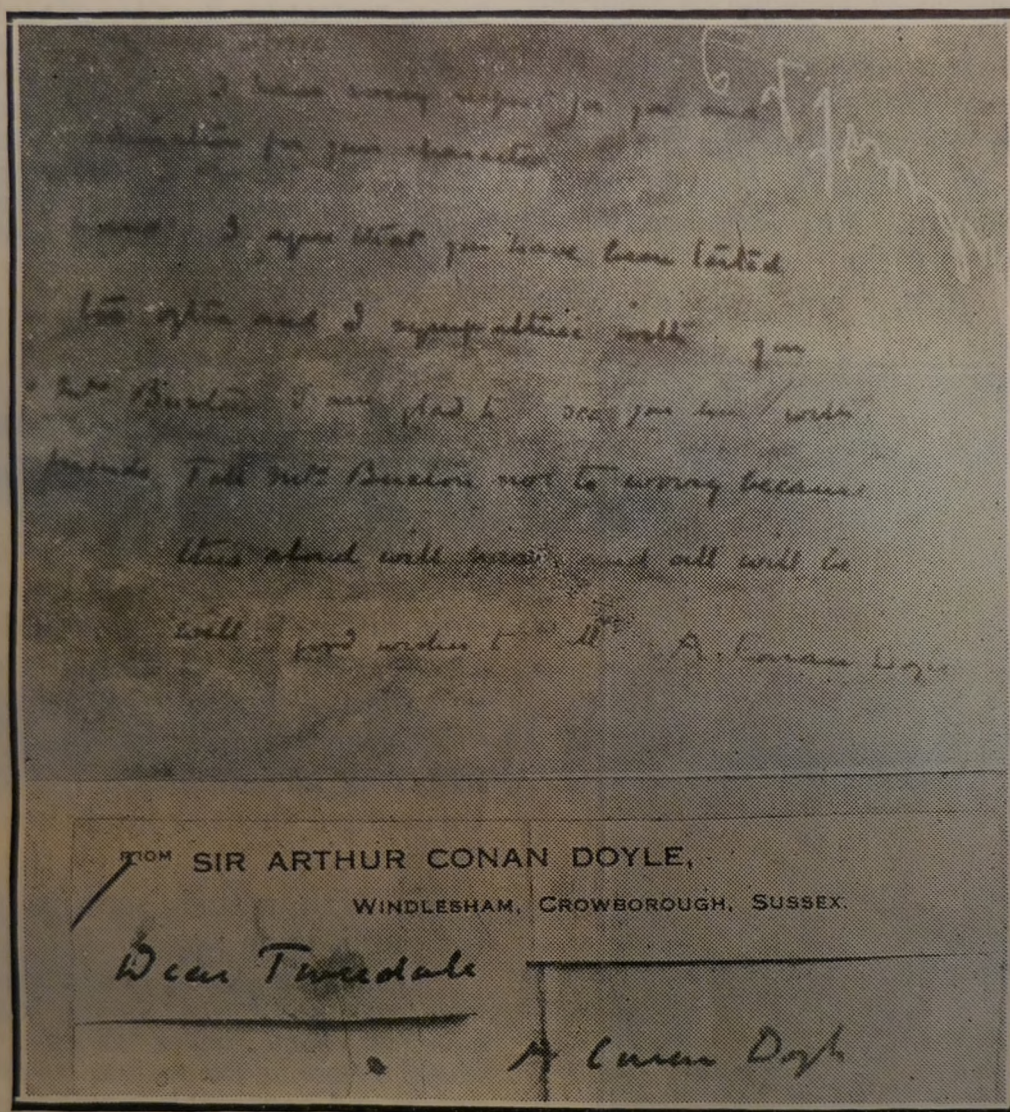 I have every respect for you and
admiration for your character
and I agree that you have been tested
too often and I sympathise with you
Mrs Buxton I am glad to see you here with
friends Tell Mrs Buxton not to worry because
this cloud will pass and all will be
well good wishes to all A. Conan Doyle
FROM SIR ARTHUR CONAN DOYLE,
WINDLESHAM, CROWBOROUGH, SUSSEX.
Dear Tweedale
A Conan Doyle